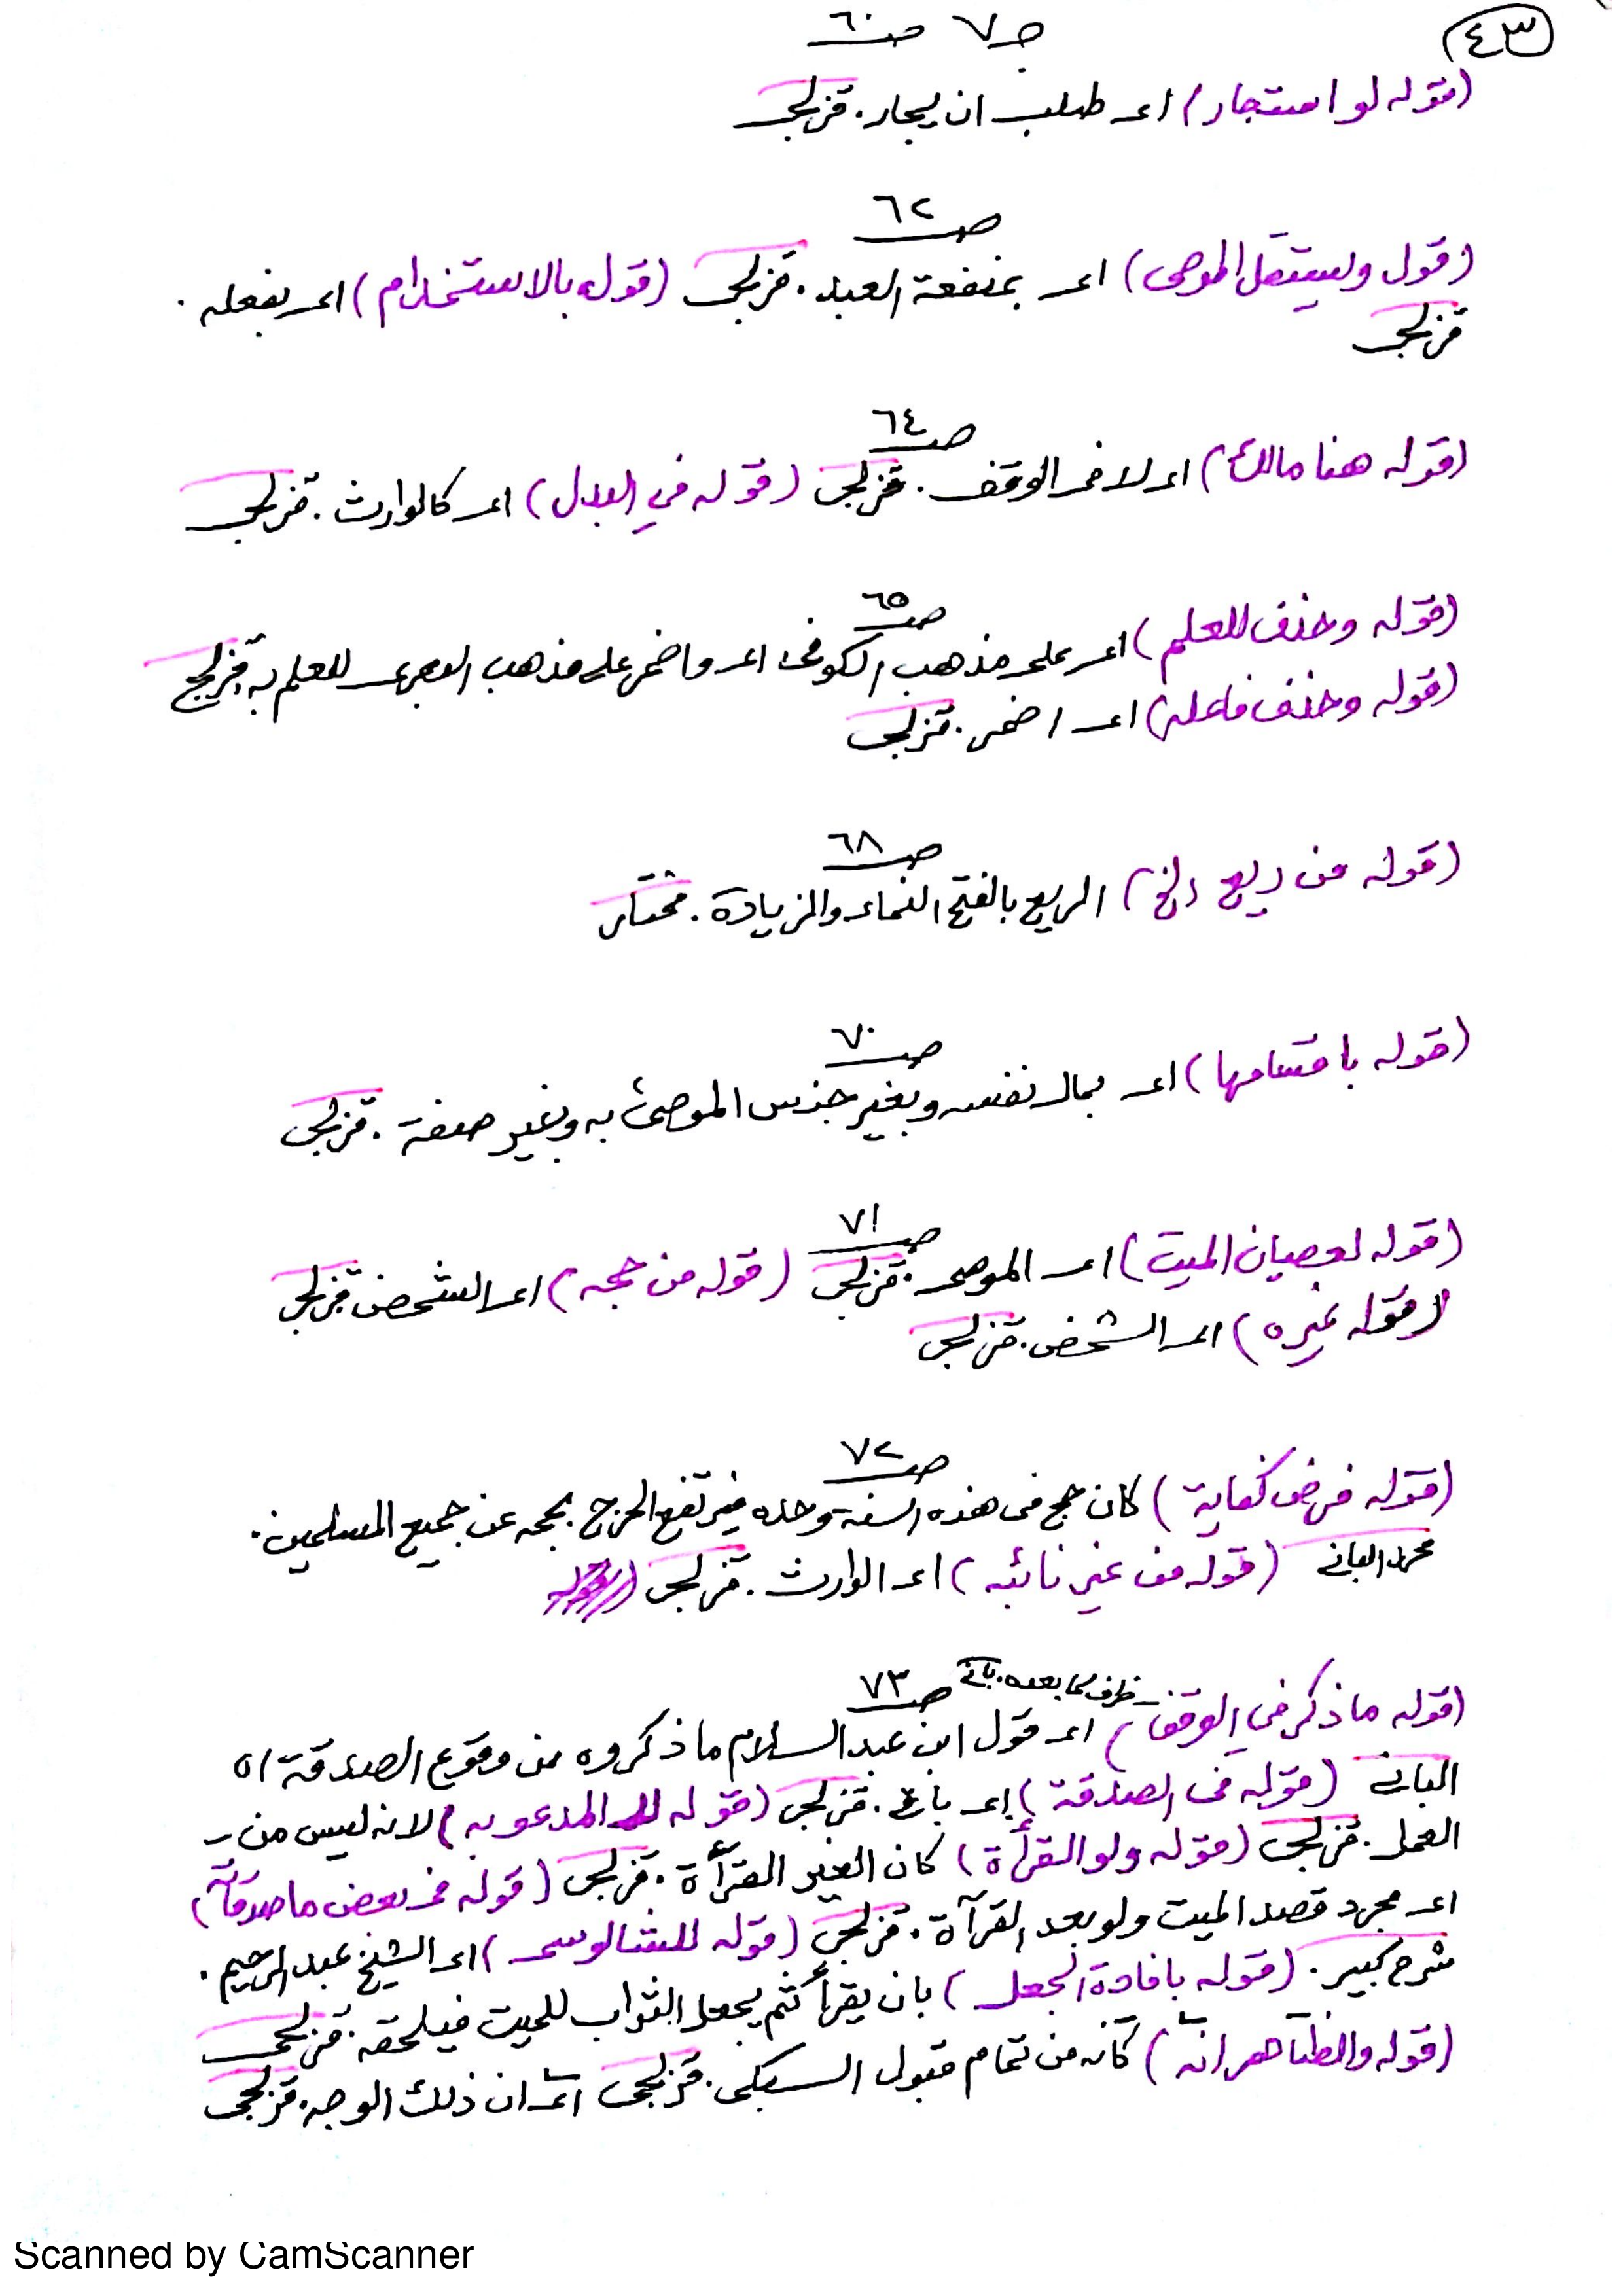 ٤٣
ج٧ ص٦٠
(قوله لو استجار) اى طلب ان يجار. قزلجى
ص٦٢
(قول ويستقل الموصى) اى بمنفعة العبد. قزلجى (قوله بالاستخدام) اى بفعله.
قزلجى
ص٦٤
(قوله هنا مالك) اى لا فى الوقف. قزلجى (قوله فى البدل) اى كالوارث. قزلجى
ص٦٥
(قوله وحذف للعلم) اى على مذهب الكوفى اى واضمر على مذهب البصرى للعلم به قزلجى
(قوله وحذف فاعله) اى اضمر. قزلجى
ص٦٨
(قوله من ريع الخ) الريع بالفتح النماء والزيادة. مختار
ص٧٠
(قوله باقسامها) اى بمال نفسه وبغير جنس الموصى به وبغير صفته. قزلجى
ص٧١
(قوله لعصيان الميت) اى الموصى. قزلجى (قوله من حجه) اى الشخص قزلجى
(قوله غيره) اى الشخص. قزلجى
ص٧٢
(قوله فرض كفاية) كان حج فى هذه السنة وحده فيرتفع الحرج بحجه عن جميع المسلمين.
محمد البانى (قوله من غير نائبه) اى الوارث. قزلجى
ص٧٣
ظرف لما بعده. بانى
(قوله ما ذكر فى الوقف) اى قول ابن عبد السلام ما ذكروه من وقوع الصدقة اه
البانى (قوله فى الصدقة) اى باغ. قزلجى (قوله المدعو به) لانه ليس من
العمل. قزلجى (قوله ولو القرأة) كان الغير القرأة. قزلجى (قوله فى بعض ماصدقاته)
اى مجرد قصد الميت ولو بعد القرآة. قزلجى (قوله للشالوسى) اى الشيخ عبد الرحيم.
شرح كبير. (قوله بافادة الجعل) بان يقرأ ثم يجعل الثواب للميت فيلحقه. قزلجى
(قوله والظاهر انه) كانه من تمام مقبول السبكى. قزلجى اى ان ذلك الوجه. قزلجى
Scanned by CamScanner